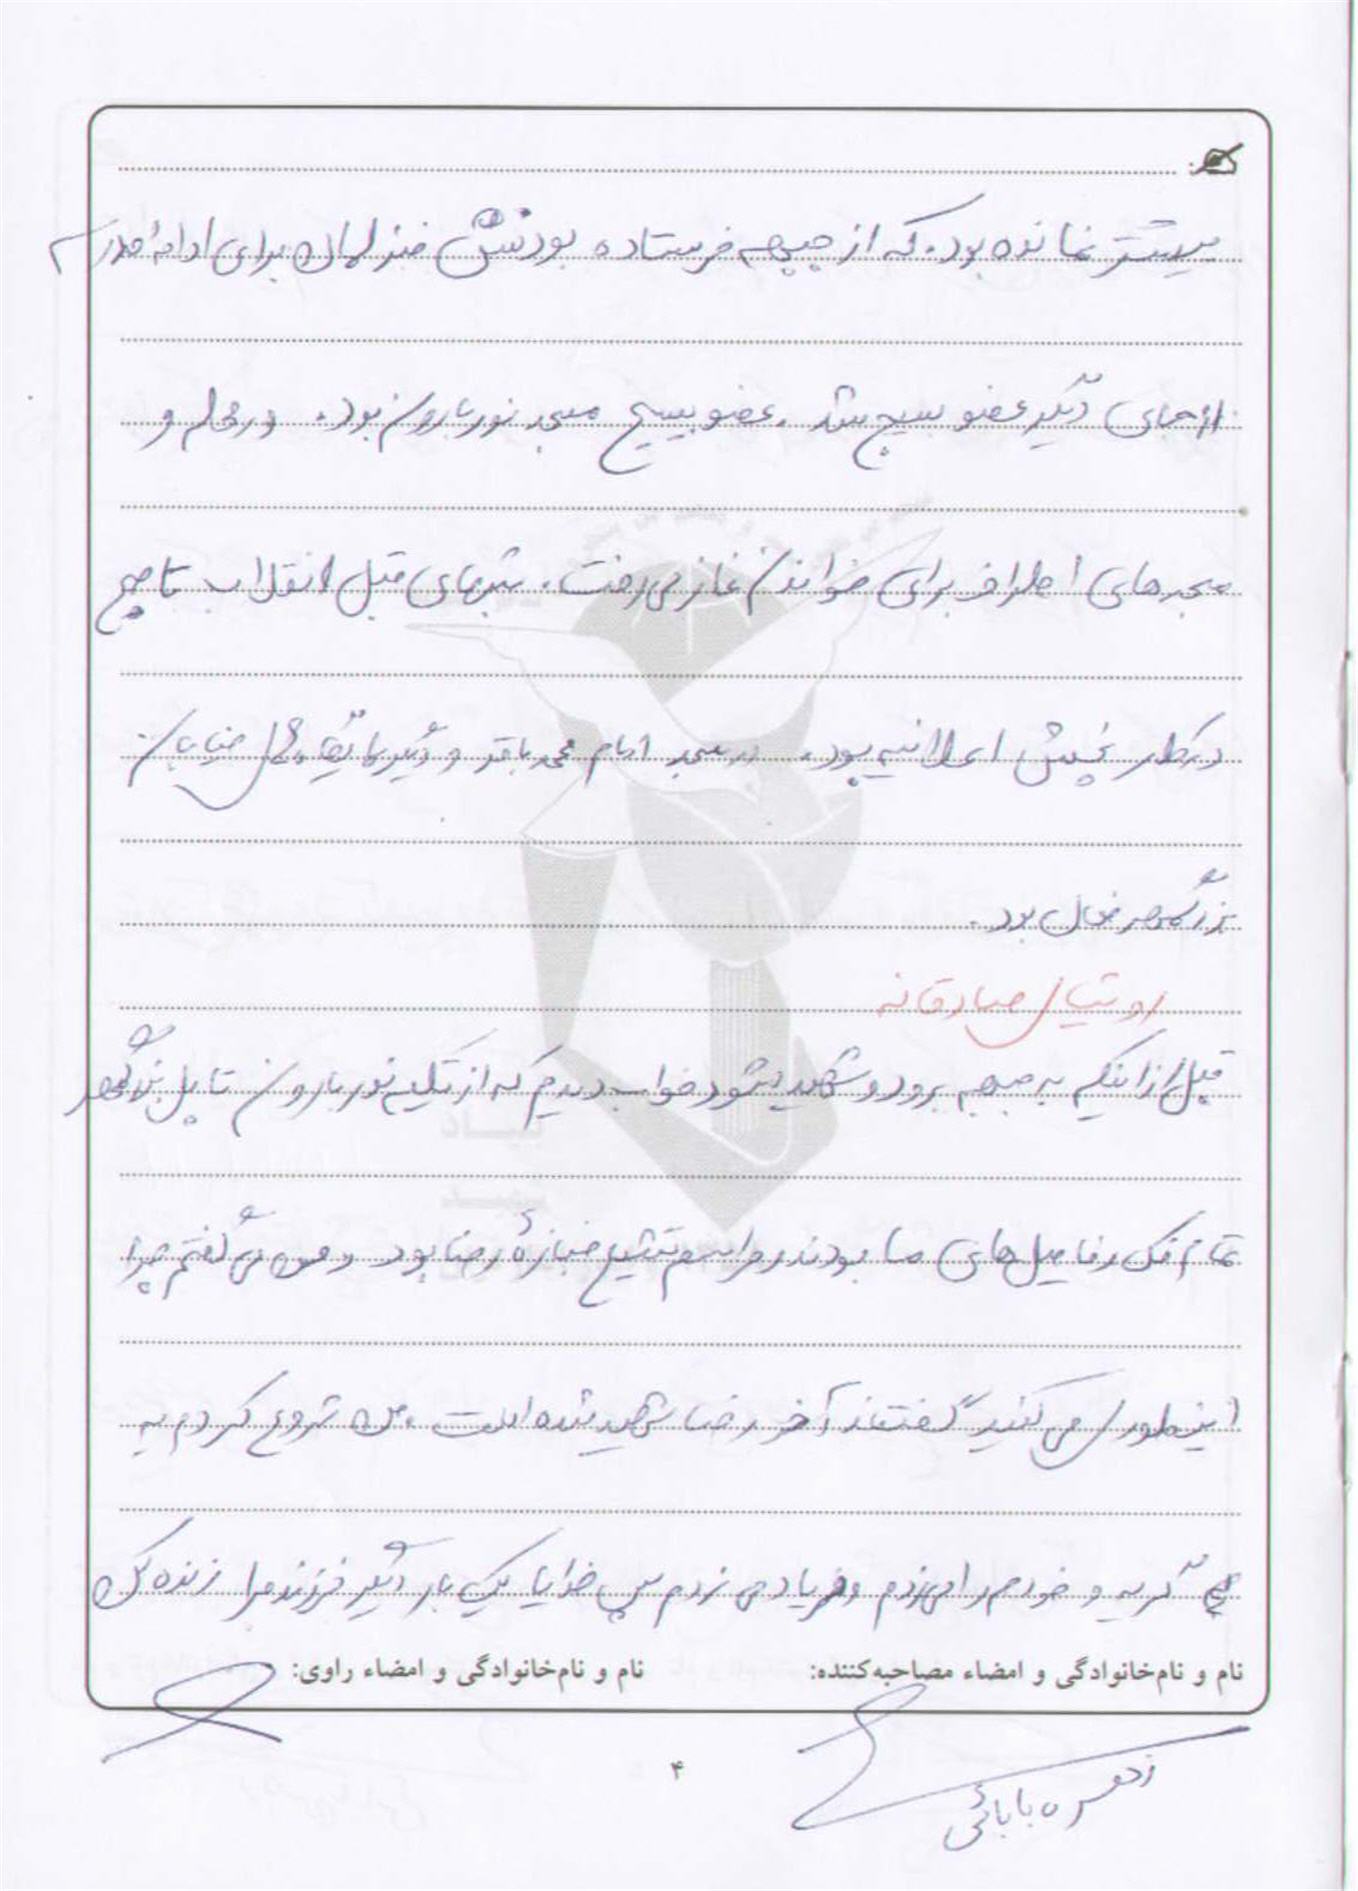 بیشتر نمانده بود. که از جبهه فرستاده بودنش منزلمان برای ادامهٔ مدرسه
از جای دیگر عضو بسیج شد. عضو بسیج مسجد نوربارون بود. در محله و
مسجدهای اطراف برای خواندن نماز می رفت. شبهای قبل انقلاب تا صبح
در کار پخش اعلانیه بود. در مسجد امام محمد باقر و دیگر جاها خیابان
بزرگمهر فعال بود.
رویای صادقانه
قبل از اینکه به جبهه برود و شهید بشود خواب دیدم که از تکیه نوربارون تا پل بزرگمهر
تمام فک و فامیل های ما بودند و مراسم تشیع جنازهٔ رضا بود و من می گفتم چرا
اینطوری می کنید گفتند آخر رضا شهید شده است. من شروع کردم به
گریه و خودم را می زدم و فریاد می زدم پس خدایا یک بار دیگر فرزندم را زنده کن
نام و نام‌خانوادگی و امضاء مصاحبه‌کننده: نام و نام‌خانوادگی و امضاء راوی:
زهره بابائی
۴